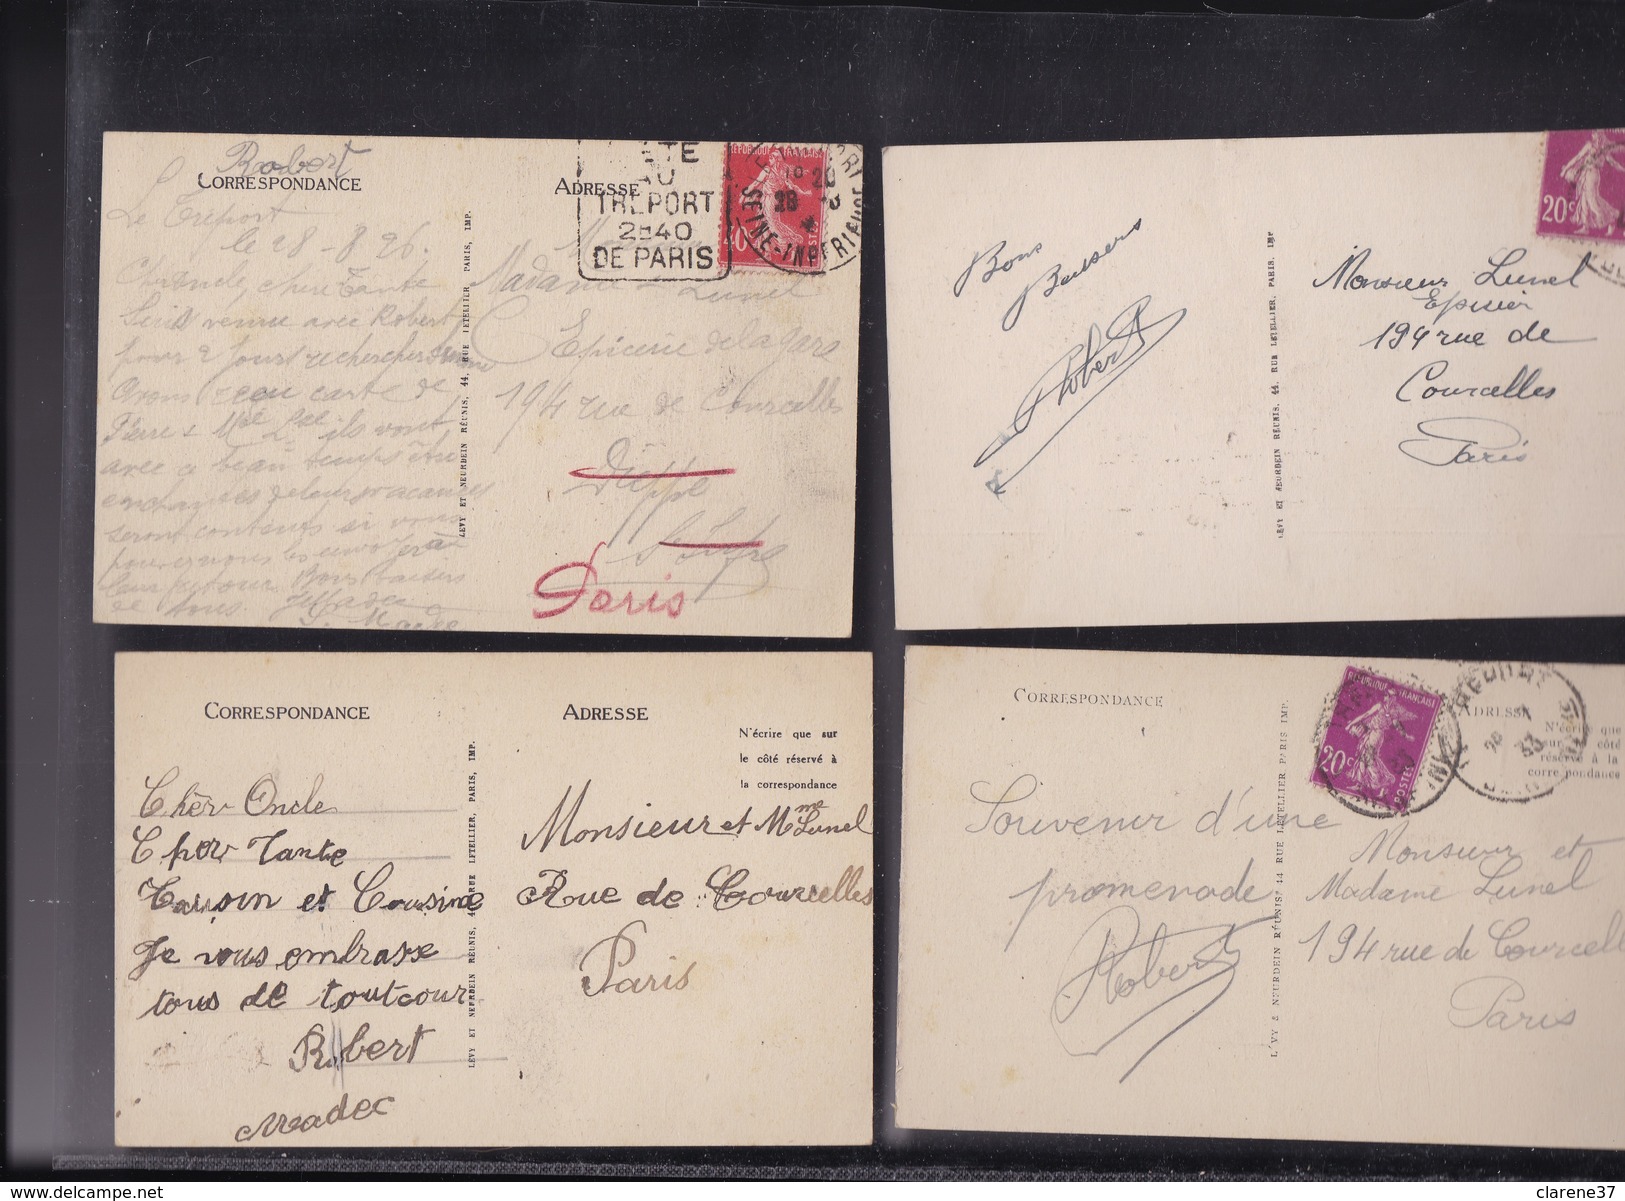 Robert
CORRESPONDANCE
Le Tréport
le 28-8-26.
Cher oncle, chère Tante
venue avec Robert
pour 2 jours rechercher
Avons reçu carte de
Pierre & ils vont
avec ce beau temps être
enchantés de leurs vacances
seront contents si vous
pouvez nous les envoyer à
leur retour. Bons baisers
de tous.
LEVY ET NEURDEIN RÉUNIS, 44, RUE LETELLIER, PARIS, IMP.
ADRESSE
AU
TREPORT
2H40
DE PARIS
REPUBLIQUE FRANÇAISE
POSTES
SEINE-INFERIEURE
28
Lunel
Epicerie de la gare
194 rue de Courcelles
Dieppe
S. Infre
Paris
Bons
Baisers
Robert
LEVY ET NEURDEIN RÉUNIS, 44, RUE LETELLIER, PARIS, IMP
20c
Monsieur Lunel
Epicier
194 rue de
Courcelles
Paris
CORRESPONDANCE
Chèr Oncle
Cher Tante
Cousin et Cousine
Je vous embrasse
tous de tout cour
Robert
Madec
LEVY ET NEURDEIN REUNIS, 44, RUE LETELLIER, PARIS, IMP.
ADRESSE
N'écrire que sur
le côté réservé à
la correspondance
Monsieur et Mme Lunel
Rue de Courcelles
Paris
CORRESPONDANCE
Souvenir d'une
promenade
Robert
LÉVY & NEURDEIN RÉUNIS, 44 RUE LETELLIER PARIS IMP.
REPUBLIQUE FRANÇAISE
20c
POSTES
ADRESSE
N'écrire que
sur le côté
réservé à la
correspondance
33
Monsieur et
Madame Lunel
194 rue de Courcell
Paris
clarene37